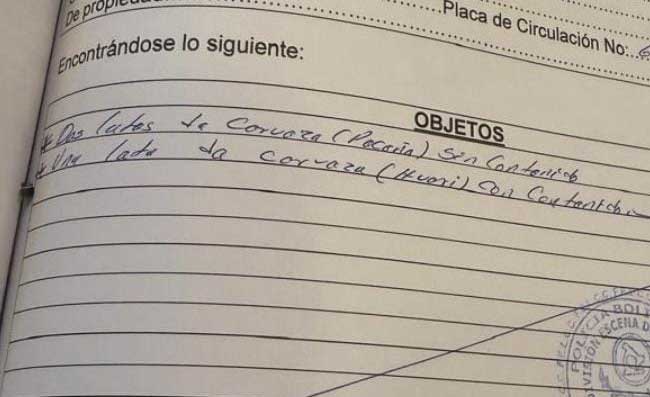 De propiedad
Placa de Circulación No:
Encontrándose lo siguiente:
OBJETOS
* Dos latas de Cerveza (Paceña) Sin Contenido
* Una lata de cerveza (Huari) Con Contenido.
POLICIA BOLI
DIVISIÓN ESCENA D